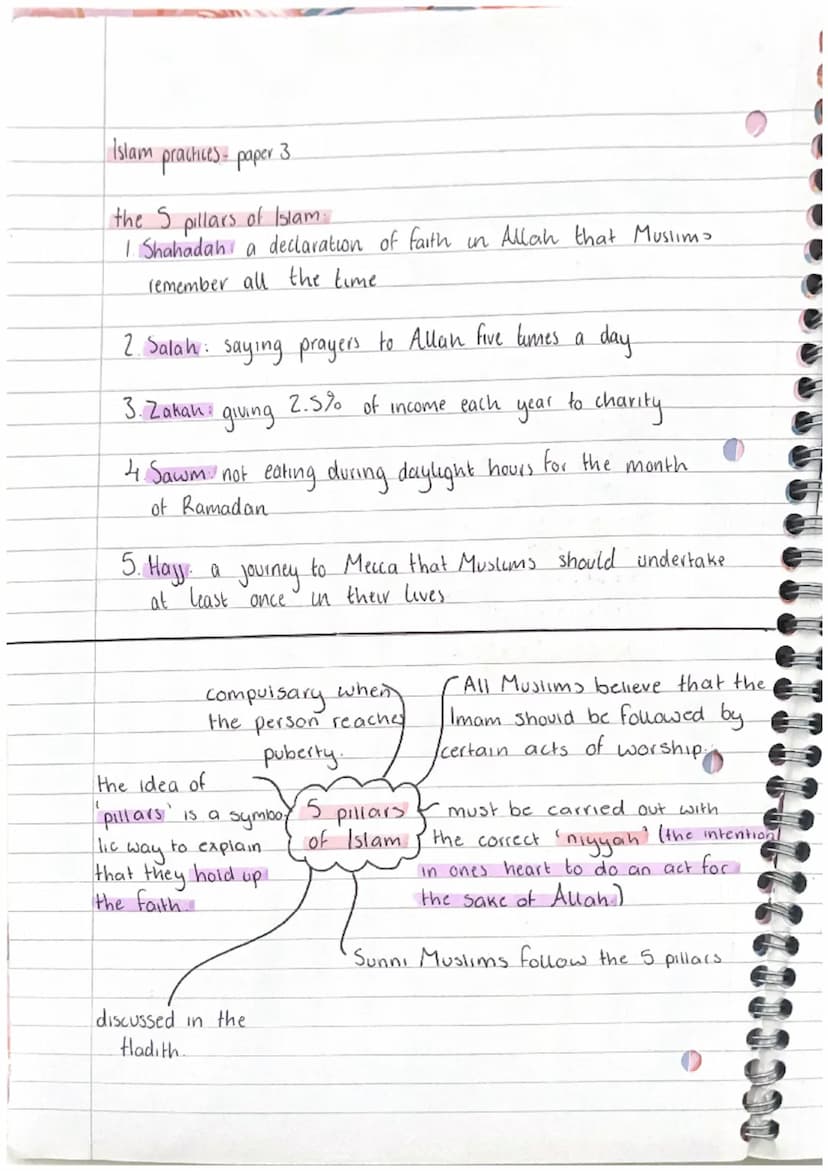 Islam practices - paper 3
the 5 pillars of Islam:
1. Shahadah: a declaration of faith in Allah that Muslims
remember all the time
2. Salah: saying prayers to Allah five times a day
3. Zakah: giving 2.5% of income each year to charity
4. Sawm: not eating during daylight hours for the month
of Ramadan
5. Hajj: a journey to Mecca that Muslims should undertake
at least once in their lives
compulsary when
the person reaches
puberty.
All Muslims believe that the
Imam should be followed by
certain acts of worship.
the idea of
'pillars' is a symbo
lic way to explain
that they hold up
the faith.
5 pillars
of Islam
must be carried out with
the correct 'niyyah' (the intention
in ones heart to do an act for
the sake of Allah)
Sunni Muslims follow the 5 pillars
discussed in the
Hadith.